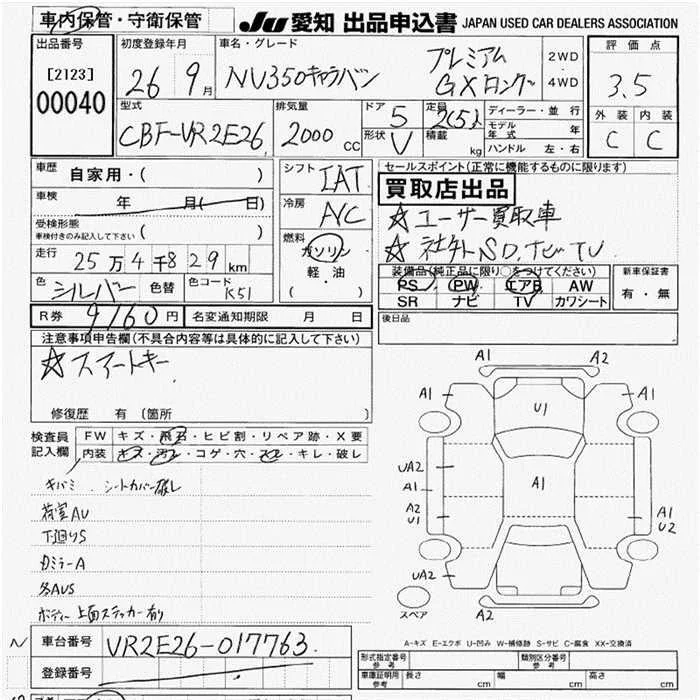 車内保管・守衛保管
JU 愛知 出品申込書 JAPAN USED CAR DEALERS ASSOCIATION
出品番号
[2123]
00040
初度登録年月
26 9月
車名・グレード
NV350キャラバン
プレミアム
GXロング
2WD
・
4WD
評価点
3.5
外装 内装
C C
型式
CBF-VR2E26
排気量
2000 cc
ドア 5
形状 V
定員 2(5)人
積載 kg
ディーラー・並行
モデル年式 年
ハンドル 左・右
車歴
自家用・( )
車検
年 月( 日)
受検形態
車検付きのみ記入して下さい ( )
走行
25万4千829km
色 シルバー 色替 色コード K51
シフト IAT
冷房 A/C
燃料
ガソリン
軽・油
( )
セールスポイント(正常に機能するものに限ります)
買取店出品
☆ユーザー買取車
☆社外SD.ナビTV
装備品(純正品に限り○をつけてください)
PS PW エアB AW
SR ナビ TV カワシート
新車保証書
有・無
R券 9160円 名変通知期限 月 日
後日品
注意事項申告欄(不具合内容等は具体的に記入して下さい)
☆スマートキー
修復歴 有 (箇所 )
検査員記入欄
FW キズ・飛石・ヒビ割・リペア跡・X要
内装 キズ・汚レ・コゲ・穴・スレ・キレ・破レ
キバミ. シートカバー破レ
荷室AU
下廻りS
カミラーA
各AUS
ボディー上面ステッカー有り
A1 A2
A1 U1 A1
UA2
A1 A1
A2
U1
A1
U2
UA2
A2
スペア
A-キズ E-エクボ U-凹み W-補修跡 S-サビ C-腐食 XX-交換済
車台番号 VR2E26-017763
登録番号
型式指定番号
参考
類別区分番号
参考
車庫証明用
参考
長さ 幅 高さ